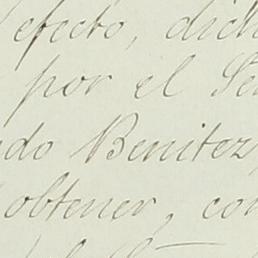 efecto, dich
por el Se
do Benitez
obtener, con